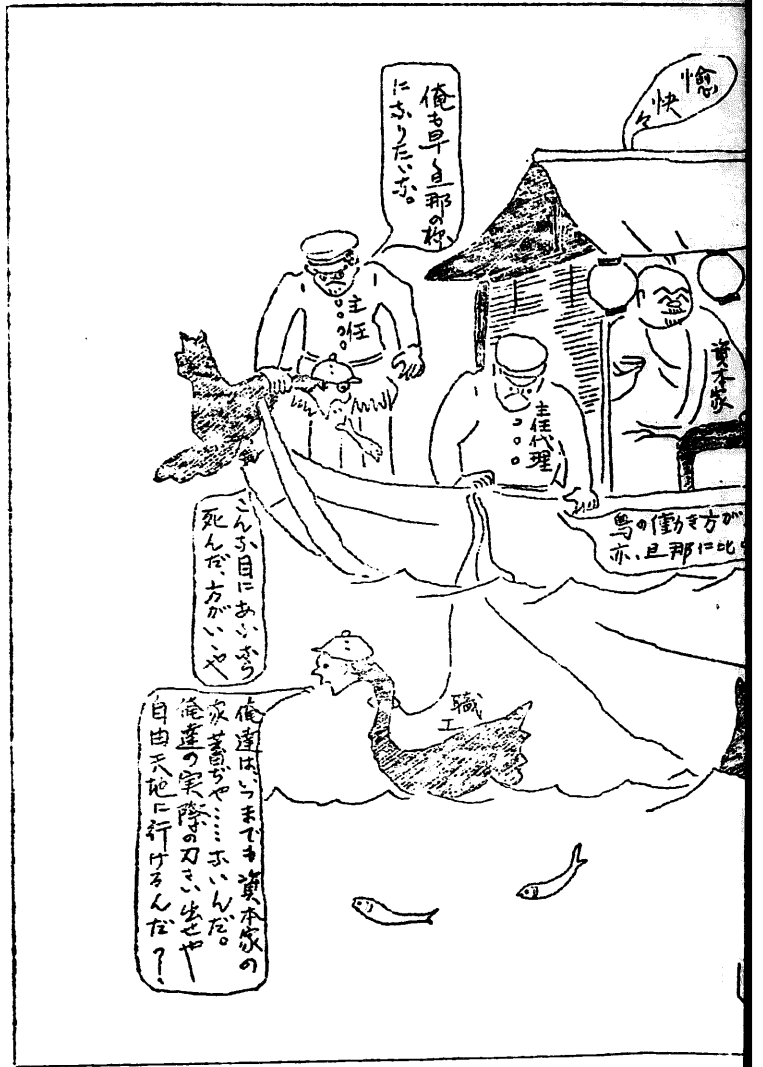 愉
快
々
俺も早く旦那の様
になりたいな。
主任
主任代理
資本家
鳥の働き方が
亦、旦那に比
こんな目にあいなら
死んだ、方がいゝや
職
工
俺達は、いつまでも資本家の
家蓄ぢや……ないんだ。
俺達の実際の力さい出せや
自由天地に行けるんだ?